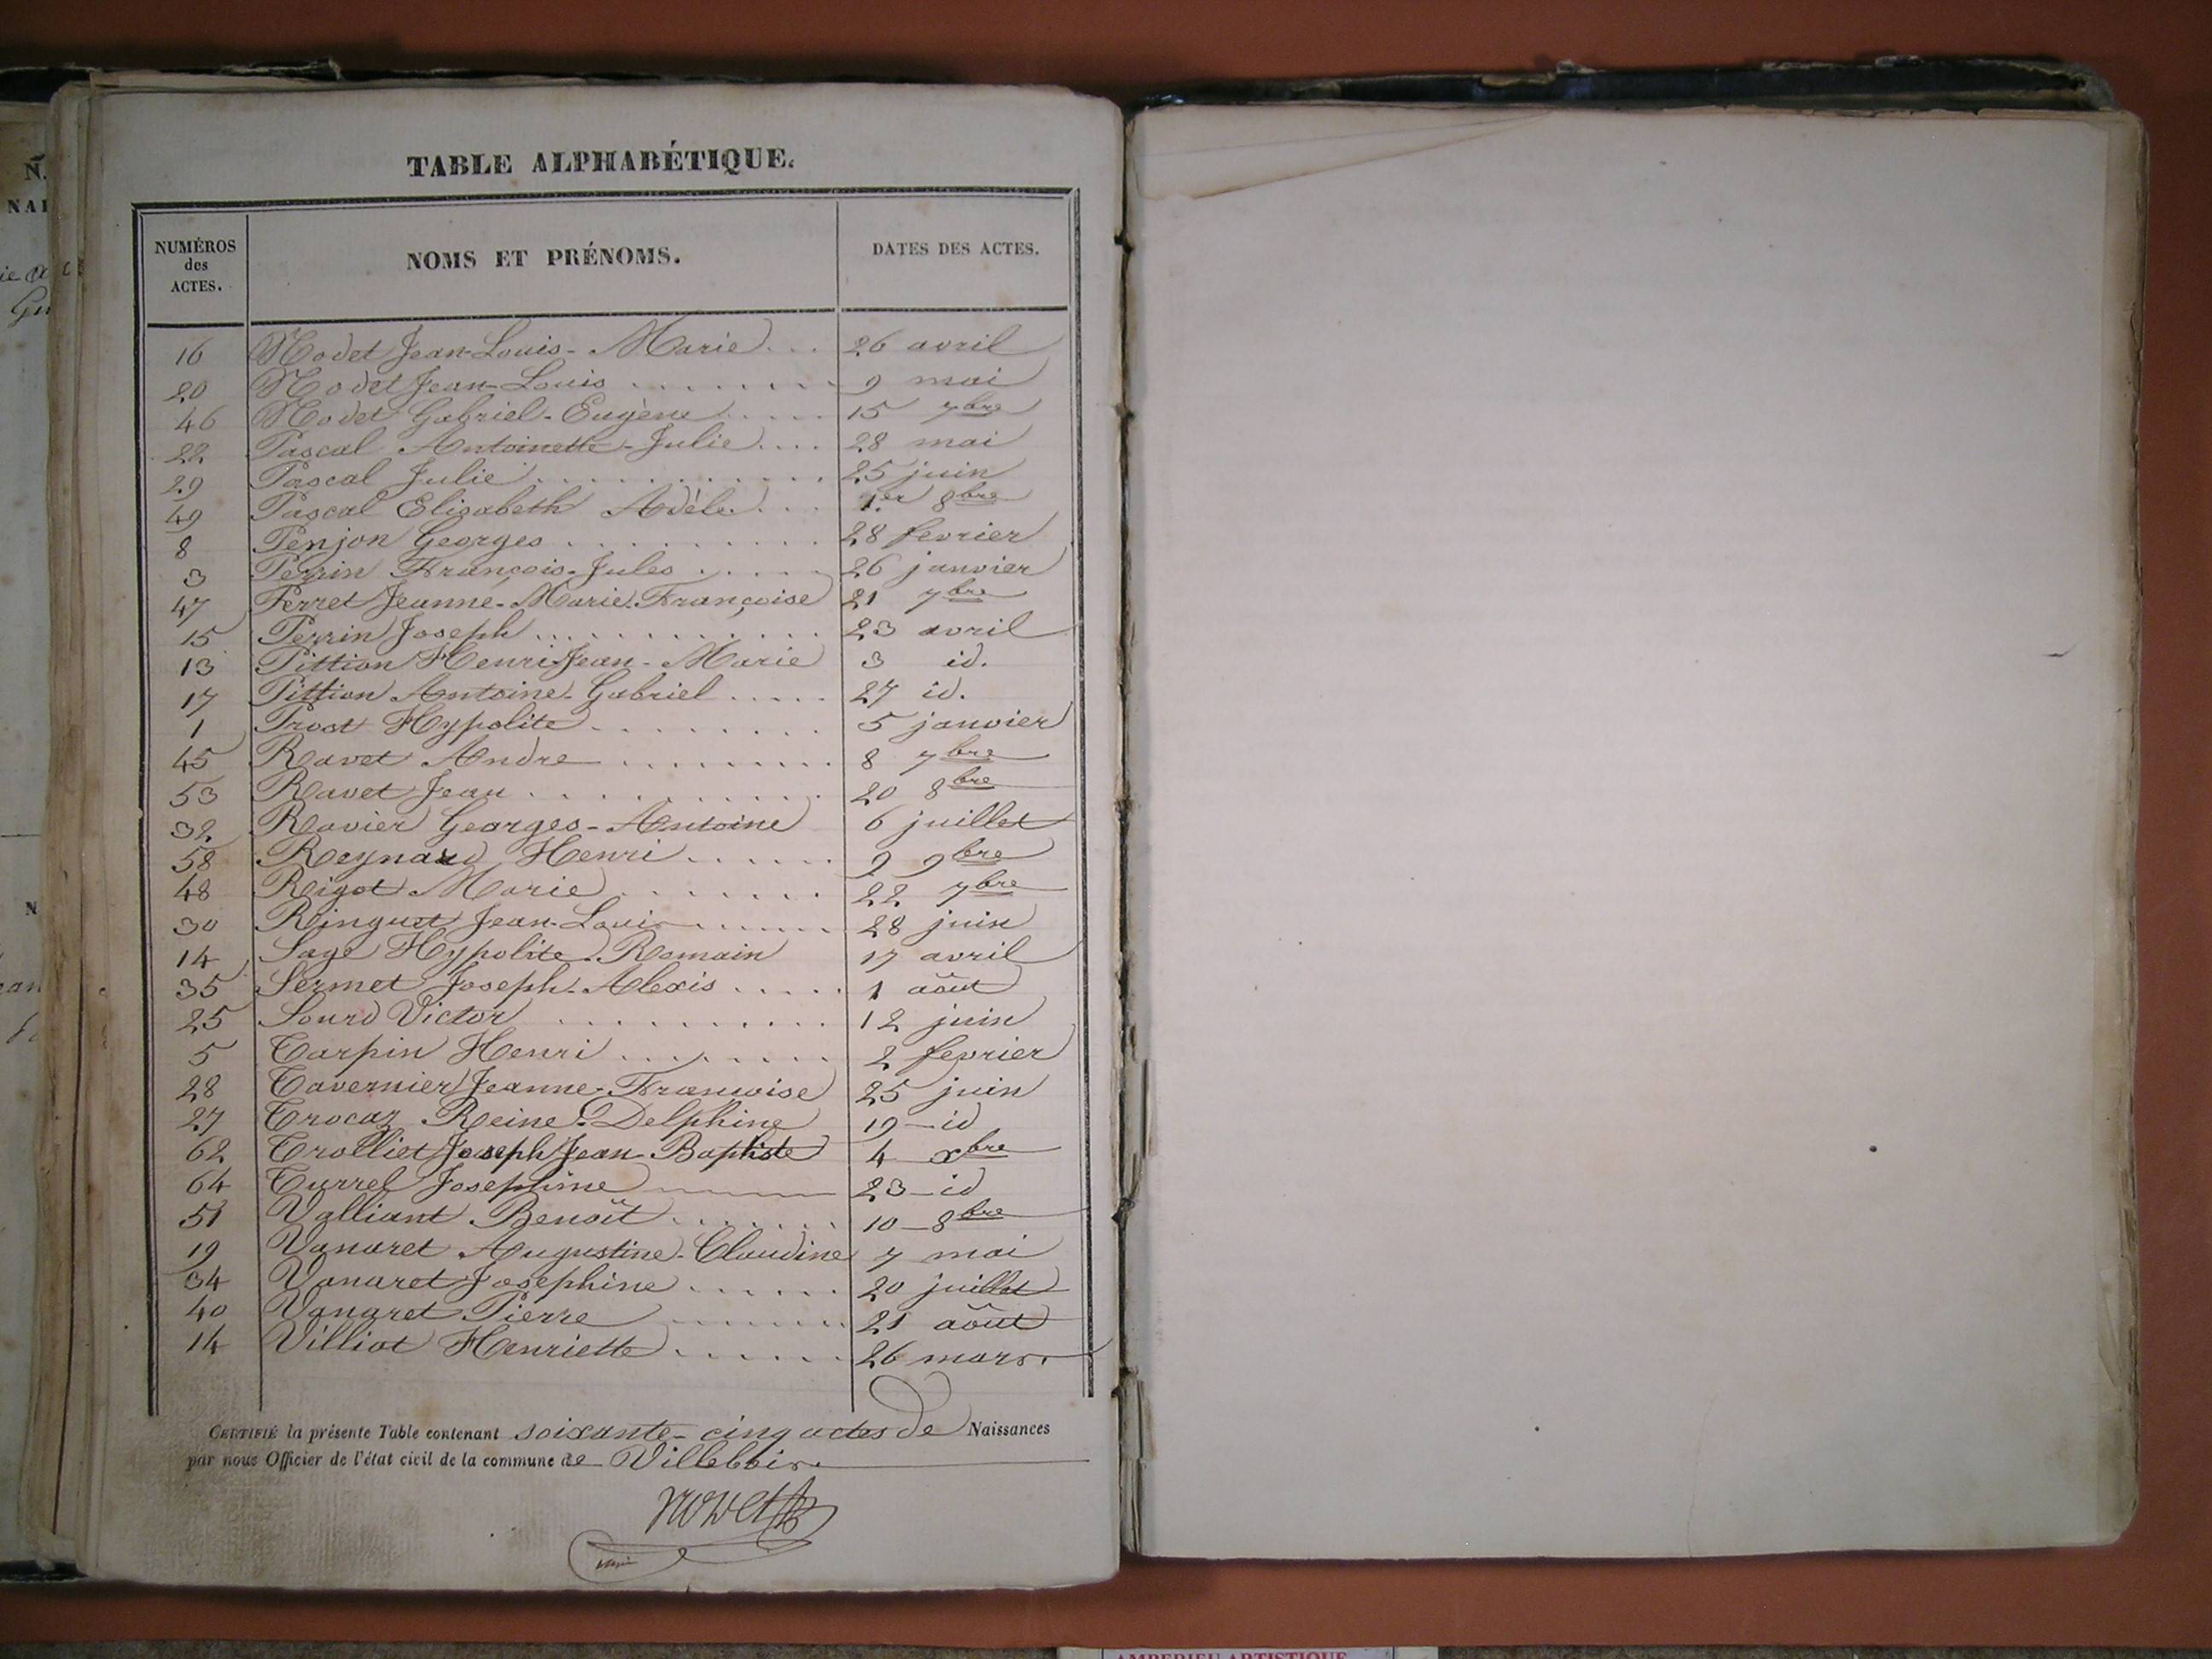 TABLE ALPHABÉTIQUE.
NUMÉROS des ACTES. NOMS ET PRÉNOMS. DATES DES ACTES.
16 Nodet Jean-Louis-Marie... 26 avril
20 Nodet Jean-Louis ....... 9 mai
46 Nodet Gabriel-Eugène .... 15 7bre
22 Pascal Antoinette-Julie.... 28 mai
29 Pascal Julie ........... 25 juin
49 Pascal Elisabeth Adèle.... 1er 8bre
8 Penjon Georges .......... 28 fevrier
3 Perrin François-Jules ..... 26 janvier
47 Perret Jeanne-Marie-Françoise 21 7bre
15 Perrin Joseph ........... 23 avril
13 Pittion Henri Jean-Marie 3 id.
17 Pittion Antoine-Gabriel ..... 27 id.
1 Prost Hypolite ........ 5 janvier
45 Ravet Andre ......... 8 7bre
53 Ravet Jean ........... 20 8bre
32 Ravier Georges-Antoine 6 juillet
58 Reynaud Henri ...... 9 9bre
48 Rigot Marie ....... 22 7bre
30 Ringuet Jean-Louis ...... 28 juin
14 Sage Hypolite-Romain 17 avril
35 Sermet Joseph-Alexis ..... 1 aôut
25 Sourd Victor .......... 12 juin
5 Tarpin Henri ........ 2 fevrier
28 Tavernier Jeanne-Françoise 25 juin
27 Trocaz Reine-Delphine 19 - id
62 Trolliet Joseph Jean-Baptiste 4 xbre
64 Turrel Josephine 23 - id
51 Valliant Benoît ....... 10 - 8bre
19 Vanaret Augustine-Claudine 7 mai
34 Vanaret Josephine ...... 20 juillet
40 Vanaret Pierre ....... 21 aôut
14 Villiot Henriette ...... 26 mars.
CERTIFIÉ la présente Table contenant soixante-cinq actes de Naissances
par nous Officier de l'état civil de la commune de Villebois.
Nodet
AMBERIEU ARTISTIQUE